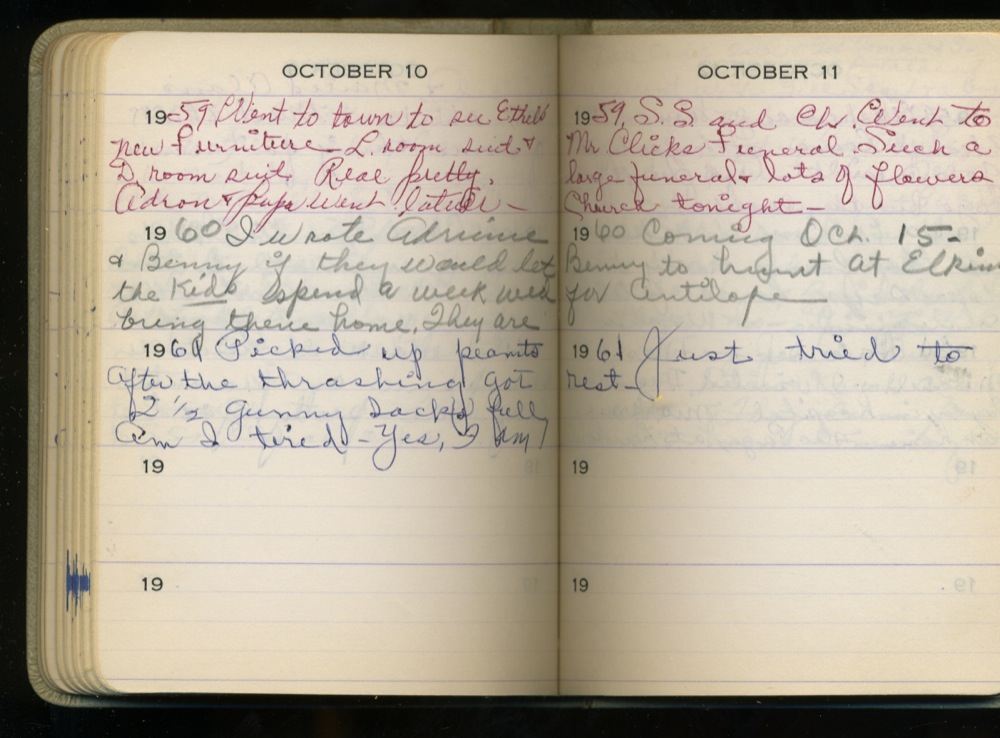 OCTOBER 10
1959 Went to town to see Ethels
new furniture - L. room suit &
D. room suit. Real pretty.
Adron & Papa went latter -
1960 I wrote Adrine
& Benny if they would let
the Kids spend a week we'd
bring them home. They are
1961 Picked up peanuts
after the thrashing got
2 1/2 gunny sacks full
Am I tired - Yes, I am
19
19
OCTOBER 11
1959, S.S. and Ch. Went to
Mr Clicks Funeral Such a
large funeral & lots of flowers
Church tonight -
1960 Coming Oct. 15 -
Benny to hunt at Elkins
for antilope
1961 Just tried to
rest -
19
19